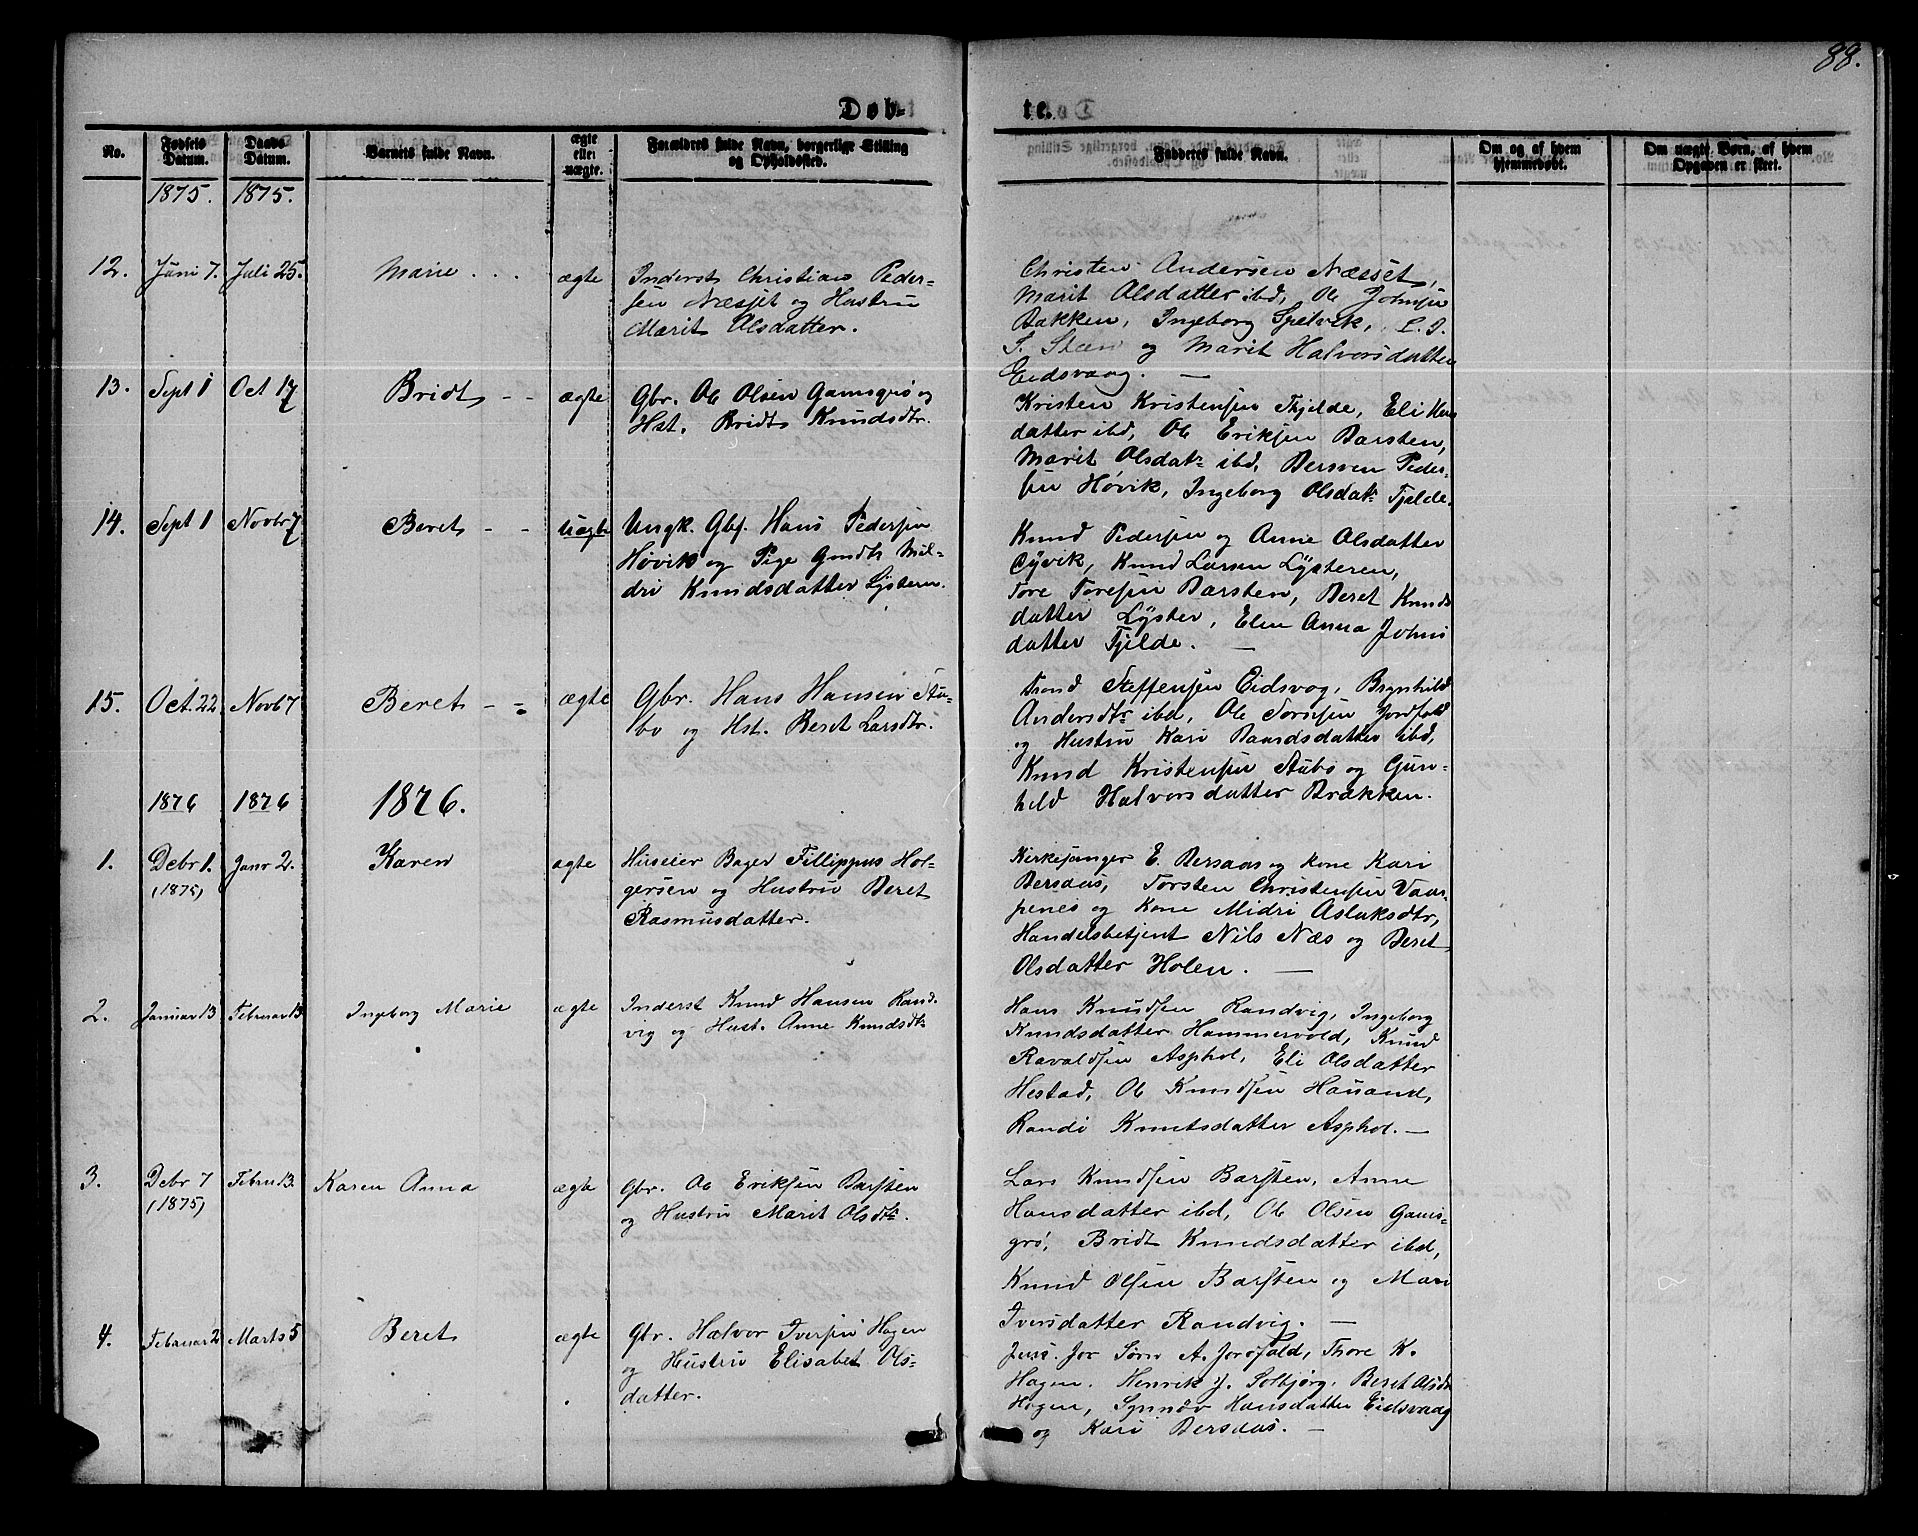 88.
Døb-
te.
No.
Fødsels Datum.
Daabs Datum.
Barnets fulde Navn.
ægte eller uægte.
Forældres fulde Navn, borgerlige Stilling og Opholdssted.
Fadderes fulde Navn.
Om og af hvem hjemmedøbt.
Om uægte Børn, af hvem Opgaven er skeet.
1875. 1875.
12. Juni 7. Juli 25. Marie ægte
Inderst Christian Peder-
sen Næsset og Hustru
Marit Olsdatter.
Christen Andersen Næsset,
Marit Olsdatter ibd, Ole Johnsen
Bakken, Ingeborg Spelvik,
Stæn og Marit Halvorsdatter
Eidsvaag. —
13. Sept 1 Oct 17 Bridt - - ægte
Gbr. Ole Olsen Gamsgrø og
Hst. Bridt Knudsdtr.
Kristen Kristensen Tjelde, Eli
datter ibd, Ole Eriksen Barsten,
Marit Olsdatr ibd, Bersven Peder-
sen Høvik, Ingeborg Olsdatr Tjelde.
14. Sept 1 Novbr 7 Beret - - uægte
Ungk. Gbs. Hans Pedersen
Høvik og Pige Gmdtr Mil-
dri Knudsdatter Lysteren.
Knud Pedersen og Anne Olsdatter
Gyvik, Knud Larsen Lysteren,
Tore Toresen Barsten, Beret Knuds
datter Lyster, Elen Anna Johns
datter Tjelde. —
15. Oct. 22 Novb 7 Beret - - ægte
Gbr. Hans Hansen Stu-
bo og Hst. Beret Larsdtr.
Trond Steffensen Eidsvog, Brynhild
Andersdtr ibd, Ole Jordfald
og Hustru Kari Baardsdatter ibd,
Knud Kristensen Stubø og Gun-
hild Halvorsdatter Brækken.
1876 1876 1876.
1. Debr 1. (1875) Janr 2. Karen ægte
Huseier Bager Fillippus Hol-
gersen og Hustru Beret
Rasmusdatter.
Kirkesanger E. Bersaas og Kone Kari
Bersaas, Torsten Christensen Vaar-
penes og Kone Midri Aslaksdtr,
Handelsbetjent Nils Næs og Beret
Olsdatter Holen. —
2. Januar 13 Februar 13 Ingeborg Marie ægte
Inderst Knud Hansen Rand-
vig og Hust. Anne Knudsdtr
Hans Knudsen Randvig, Ingeborg
Knudsdatter Hammervold, Knud
Ravaldsen Asphol, Eli Olsdatter
Hestad, Ole Knudsen Hauand,
Randi Knutsdatter Asphol. —
3. Debr 7 (1875) Febru 13. Karen Anna ægte
Gbr. Ole Eriksen Barsten
og Hustru Marit Olsdtr.
Lars Knudsen Barsten, Anne
Hansdatter ibd, Ole Olsen Gams-
grø, Bridt Knudsdatter ibd,
Knud Olsen Barsten og Mari
Iversdatter Randvig. —
4. Februar 2 Marts 5 Beret ægte
Gbr. Halvor Iversen Hagen
og Hustru Elisabet Ols-
datter.
A. Jordfald, Thore K.
Hagen, Henrik J. Solbjørg, Beret Olsdr
Hagen, Synnøv Hansdatter Eidsvaag
og Kari Bersaas. —